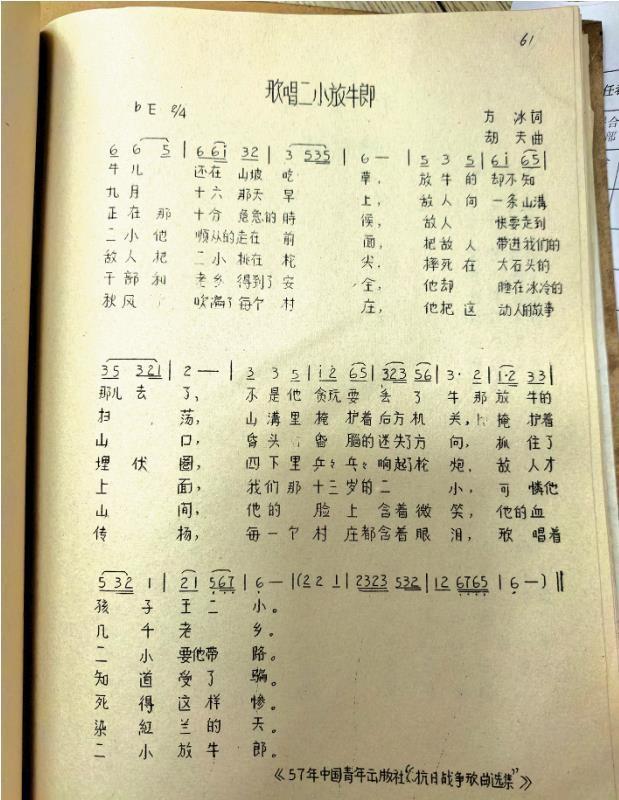 61
歌唱二小放牛郎
bE 2/4
方冰词
胡夫曲
6 6 5 | 6 6 i 3 2 | 3 5 3 5 | 6 — | 5 3 5 | 6 i 6 5 |
牛儿 还在 山坡 吃 草， 放牛的 却不知
九月 十六 那天 早 上， 敌人向 一条山溝
正在那 十分 危急的 時 候， 敌人 快要走到
二小他 顺从的走在 前 面， 把敌人 带进我们的
敌人把 二小 挑在 枪 尖， 摔死在 大石头的
干部和 老乡 得到了 安 全， 他却 睡在冰冷的
秋风 吹遍了每个 村 庄， 他把这 动人的故事
3 5 3 2 1 | 2 — | 3 3 5 | i 2 6 5 | 3 2 3 5 6 | 3· 2 | 1·2 3 3 |
那儿去 了， 不是他 贪玩耍 丢了 牛 那放牛的
扫 荡， 山溝里 掩护着后方机 关， 掩护着
山 口， 昏头昏腦的迷失了方 向， 抓住了
埋伏圈， 四下里乒乒乓乓响起了枪 炮， 敌人才
上 面， 我们那十三岁的二 小， 可憐他
山 间， 他的脸上含着微 笑， 他的血
传 扬， 每一个村庄都含着眼 泪， 歌唱着
5 3 2 1 | 2 1 5 6 7 | 6 — | (2 2 1 | 2 3 2 3 5 3 2 | 1 2 6 7 6 5 | 6 —) ‖
孩子王二小。
几千老乡。
二小要他带路。
知道受了骗。
死得这样惨。
染紅兰的天。
二小放牛郎。
《57年中国青年出版社“抗日战争歌曲选集”》